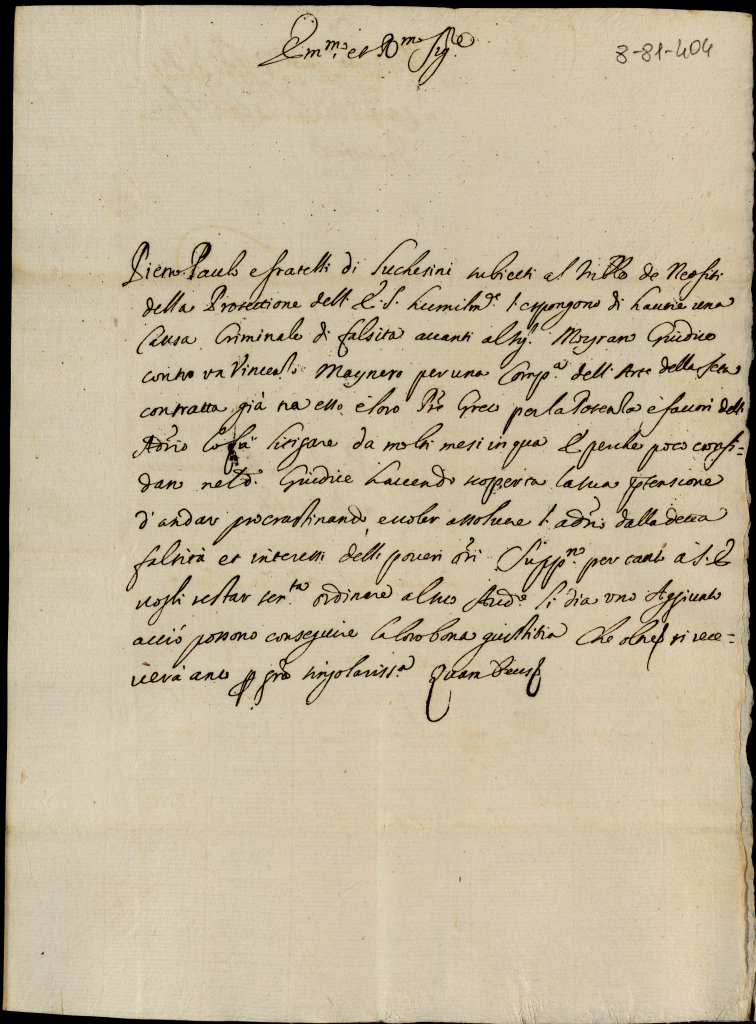 Em.mo et R.mo Sig.re
8-81-404
Pietro Paulo e fratelli di Luchesini
della Protettione dell' E. S. humilm.te l'espongono di havere una
Causa Criminale di falsità avanti al Sig.r Moyran Giudice
contro va Vincen.o Maynero per una Comp.a dell' Arte della seta
contratta già tra esso e loro P.re Greco per la Potenza e favori dell
Adrio litigare da molti mesi in qua E perche poco confi=
dan nel d.o Giudice havendo scoperta la sua ptensione
d'andar procrastinando, e voler assolvere l'adrio dalla detta
falsità et interessi delli poveri ori Supp.no per tanto à S. E
vogli restar ser.ta ordinare al suo Aud.e li dia uno Aggiunto
acciò possono conseguire la loro bona giustitia Che oltre ri rece=
verà ano p gra singolariss.a Quam Deus